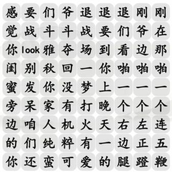 感要们爷退退退刚刚
觉战斗斗战要们爷在
你look雅夺场到看边那
闺别秋回一你啪啪一
蜜发你没梦上一一一
旁呆家有打晚个个个
边咱人机火天右左连
的们纯粹有里在正五
你还蛮可爱的腿蹬鞭